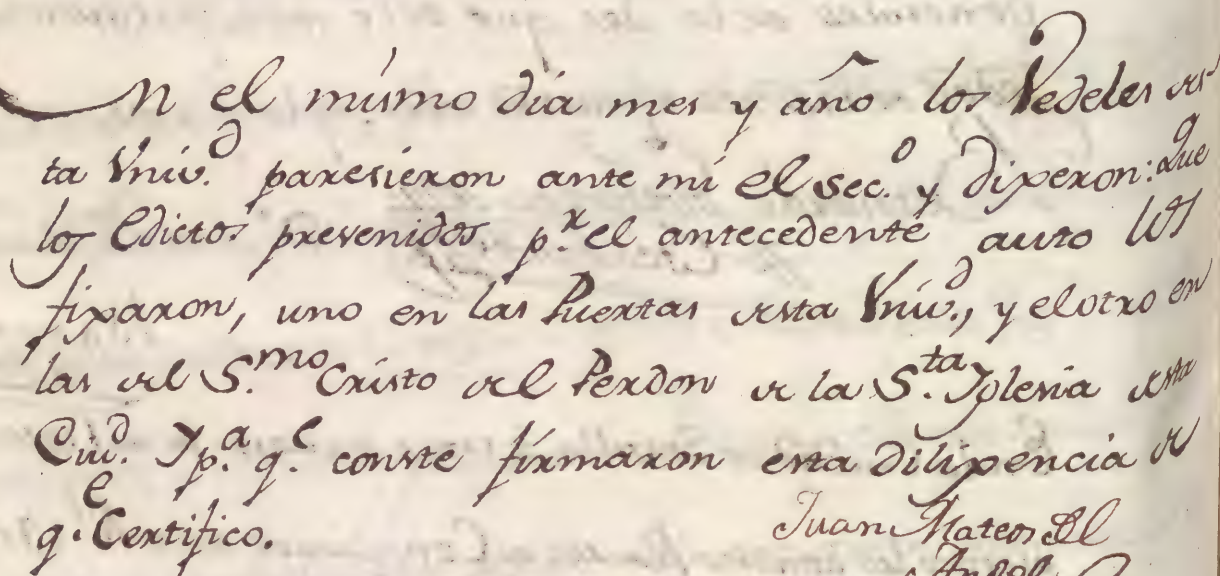 En el mismo dia mes y año los Vedeles des-
ta Vniv.d paresieron ante mi el Sec.o y dixeron: Que
los Edictos prevenidos p.r el antecedente auto los
fixaron, uno en las Puertas desta Vniv.d, y el otro en
las del S.mo Cristo del Perdon de la S.ta Yglesia desta
Ciud.d Y p.a q.e conste firmaron esta Dilixencia de
q.e Certifico.
Juan Mateos del
Angel